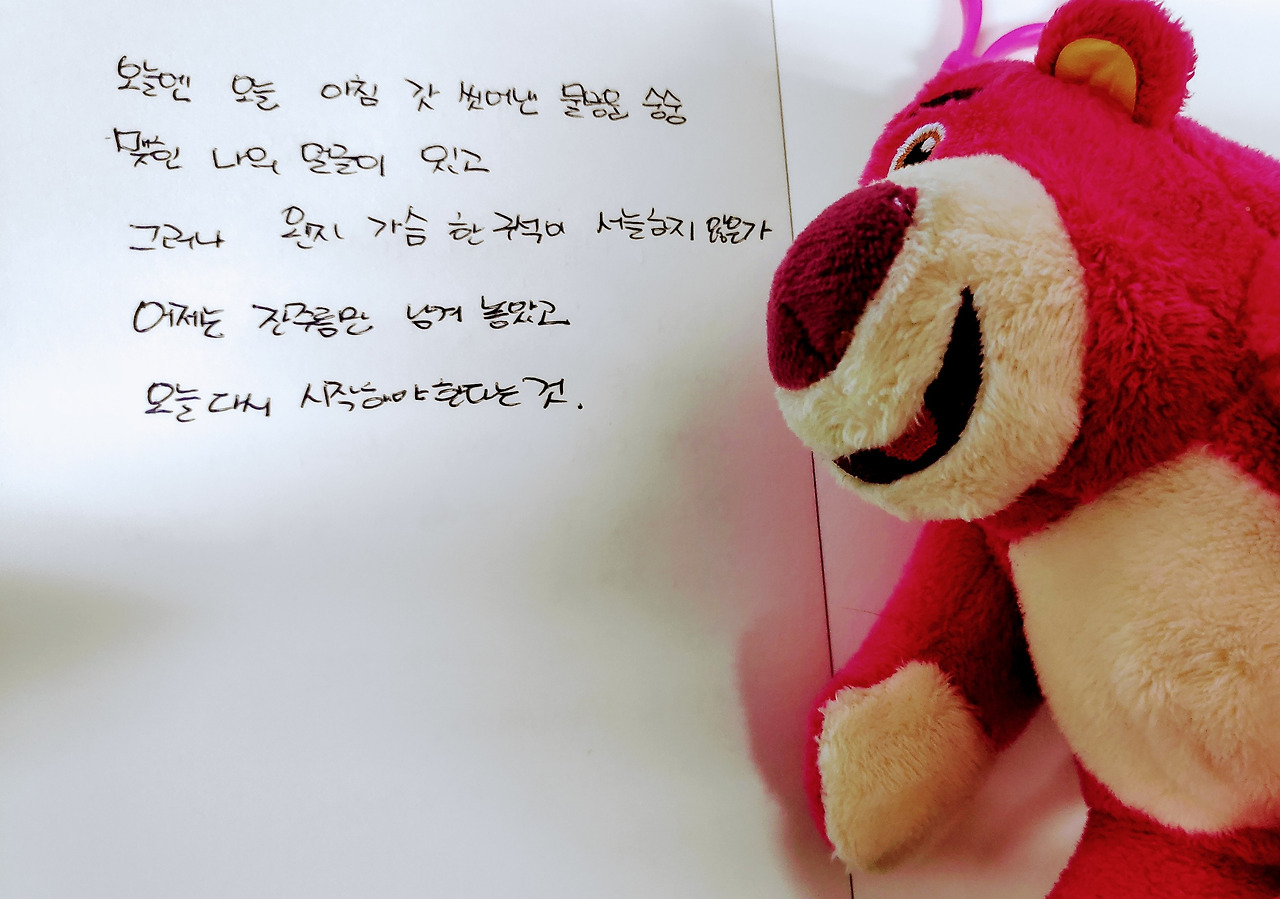 오늘엔 오늘 아침 갓 씻어낸 물방울 송송
맺힌 나의 얼굴이 있고
그러나 왠지 가슴 한 구석이 서늘하지 않은가
어제는 잔주름만 남겨 놓았고
오늘 다시 시작해야 한다는 것.